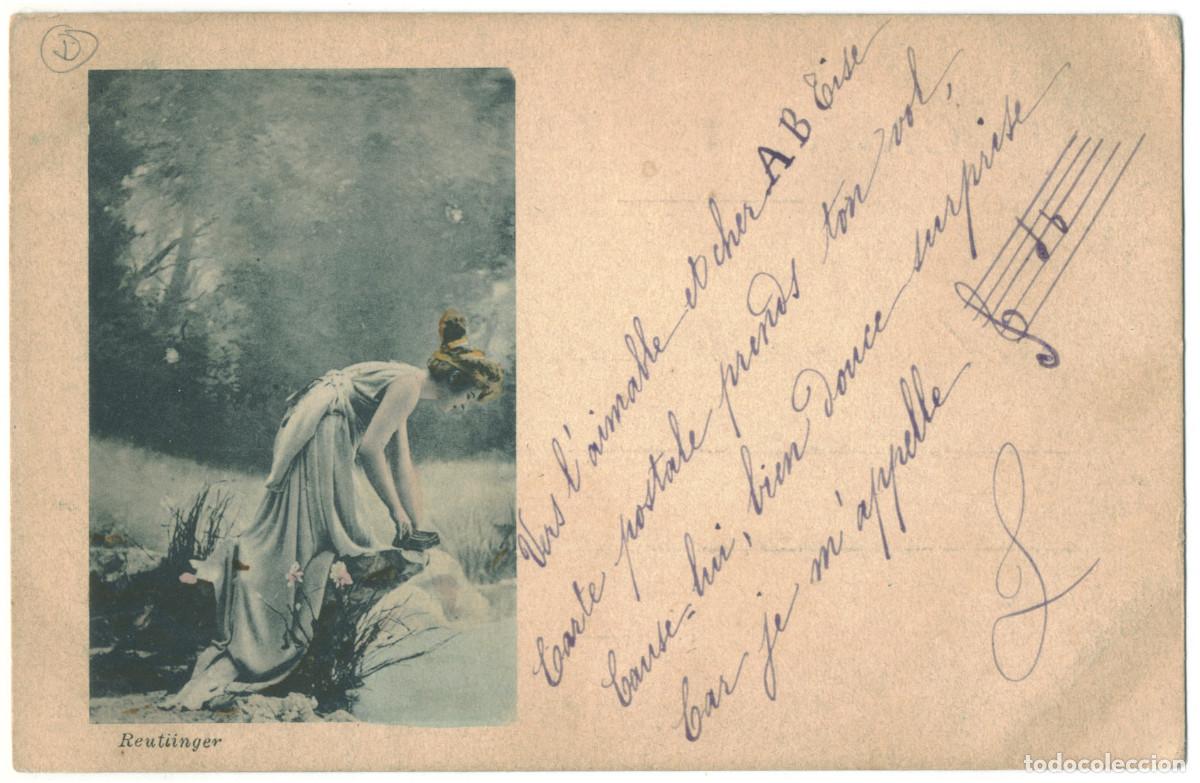 Vers l'aimable et cher A B Eise
Carte postale prends ton vol,
Cause-lui, bien douce surprise
Car je m'appelle
Reutiinger
todocoleccion